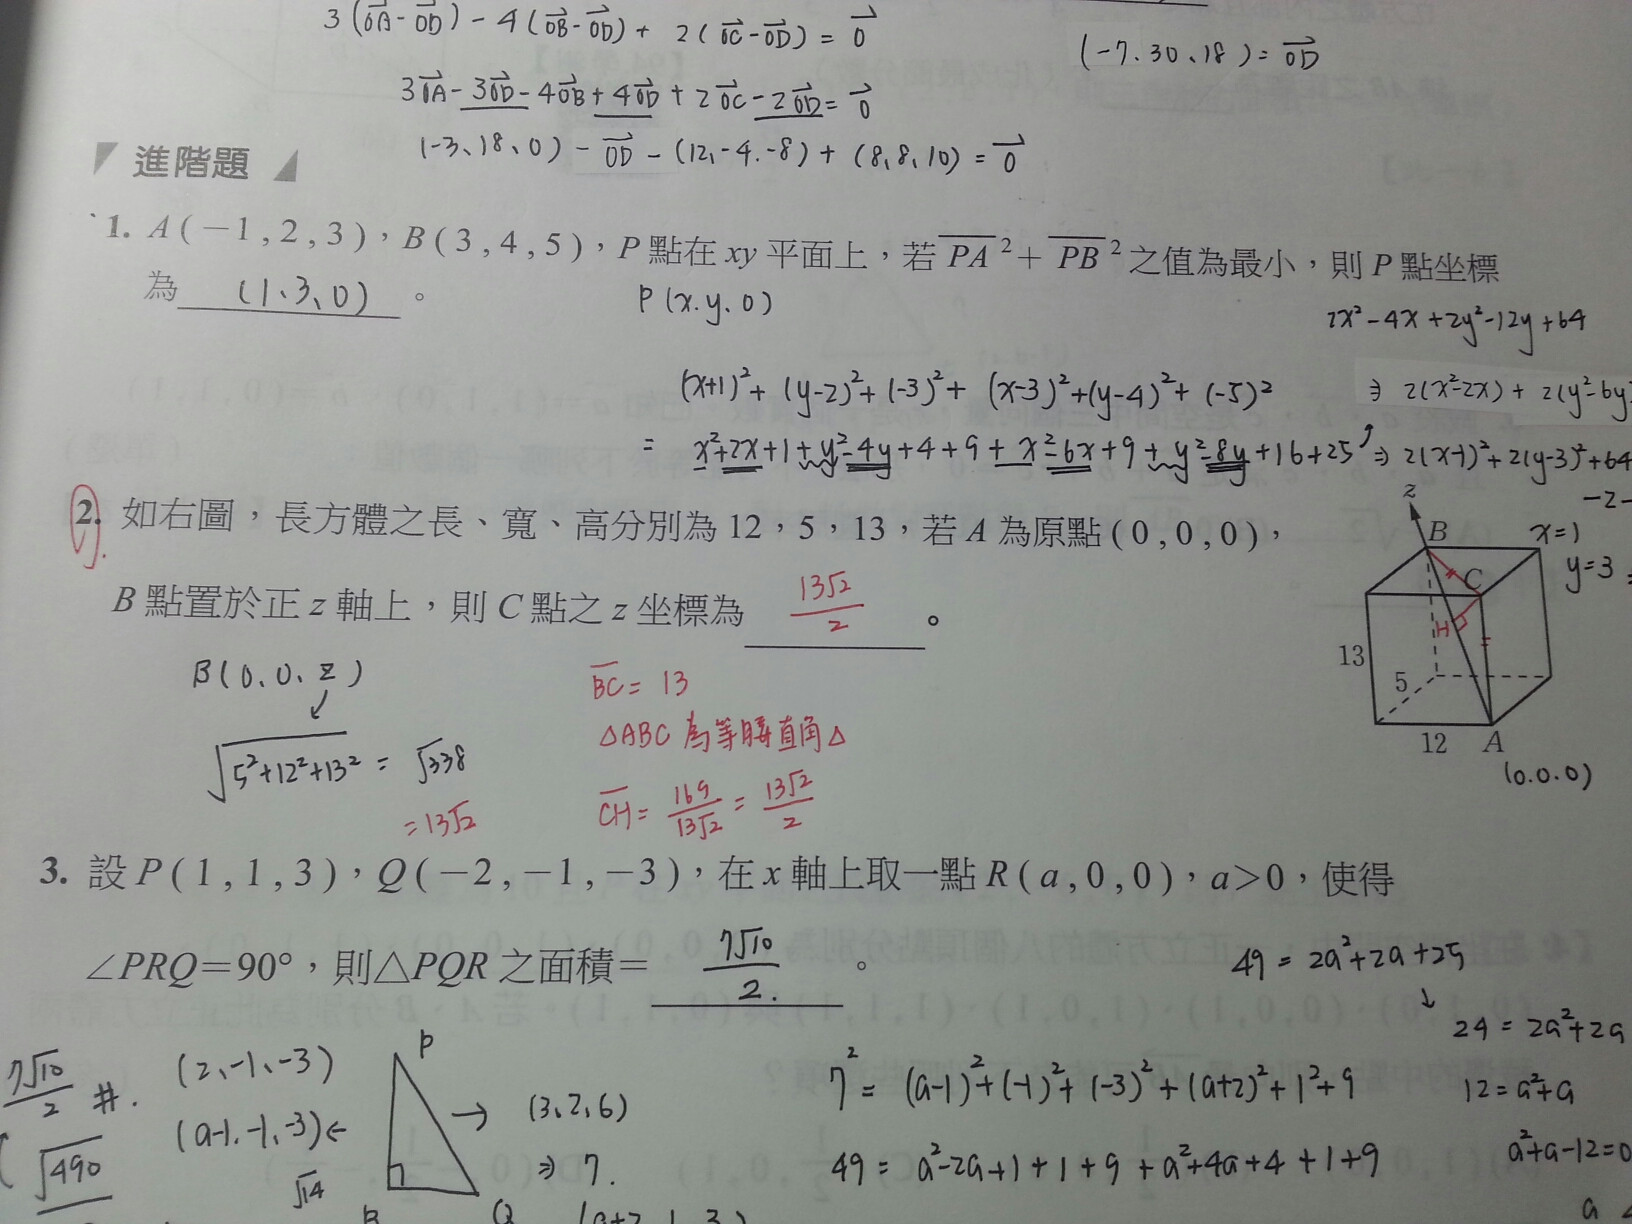 3(OA-OD)-4(OB-OD)+2(OC-OD)=0
(-7.30、18)=OD
3OA-3OD-4OB+4OD+2OC-2OD=0
(-3、18、0)-OD-(12,-4.-8)+(8,8,10)=0
進階題
1. A(-1,2,3),B(3,4,5),P點在xy平面上,若PA²+PB²之值為最小,則P點坐標
為 (1、3、0) 。
P(x.y.0)
2x²-4x+2y²-12y+64
(x+1)²+(y-2)²+(-3)²+(x-3)²+(y-4)²+(-5)²
⇒ 2(x²-2x)+2(y²-6y)
= x²+2x+1+y²-4y+4+9+x²-6x+9+y²-8y+16+25 ⇒ 2(x-1)²+2(y-3)²+64
-2-
x=1
y=3
2. 如右圖,長方體之長、寬、高分別為12,5,13,若A為原點(0,0,0),
B點置於正z軸上,則C點之z坐標為 13√2/2 。
z
B
C
H
13
5
12 A
(0.0.0)
B(0、0、z)
√5²+12²+13² = √338
=13√2
BC=13
△ABC為等腰直角△
CH=169/13√2=13√2/2
3. 設P(1,1,3),Q(-2,-1,-3),在x軸上取一點R(a,0,0),a>0,使得
∠PRQ=90°,則△PQR之面積= 7√10/2. 。
49=2a²+2a+25
24=2a²+2a
12=a²+a
a²+a-12=0
7²=(a-1)²+(-1)²+(-3)²+(a+2)²+1²+9
49=a²-2a+1+1+9+a²+4a+4+1+9
7√10/2 #.
√490
(2、-1、-3)
(a-1.-1.-3)←
√14
P
→ (3、2、6)
⇒ 7.
R
Q